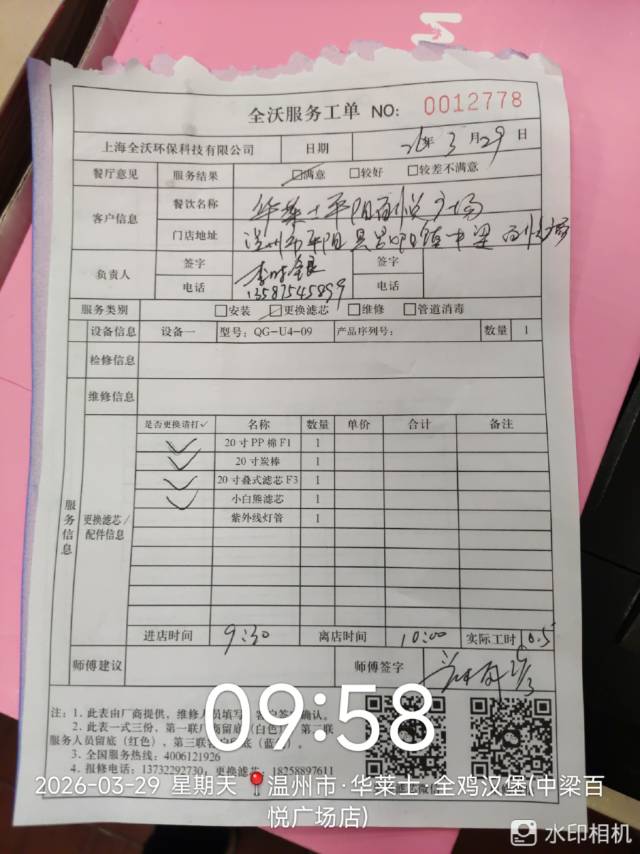 全沃服务工单 NO: 0012778
上海全沃环保科技有限公司 日期 26年3月29日
餐厅意见 服务结果 ☑满意 □较好 □较差不满意
客户信息 餐饮名称 华莱士平阳百悦广场
门店地址 温州市平阳县昆阳镇中梁百悦广场
负责人 签字 签字
电话 13587545899 电话
服务类别 □安装 ☑更换滤芯 □维修 □管道消毒
设备信息 设备一 型号: QG-U4-09 产品序列号: 数量 1
检修信息
维修信息
服务信息
更换滤芯/配件信息
是否更换请打✓ 名称 数量 单价 合计 备注
✓ 20寸PP棉F1 1
✓ 20寸炭棒 1
✓ 20寸叠式滤芯F3 1
✓ 小白熊滤芯 1
紫外线灯管 1
进店时间 9:30 离店时间 10:00 实际工时 0.5
师傅建议 师傅签字 29/3
注: 1. 此表由厂商提供, 维修人员填写, 客户签确认。
2. 此表一式三份, 第一联厂商留底(白色), 第二联
服务人员留底(红色), 第三联客户留底(蓝色)。
3. 全国服务热线: 4006121926
4. 报修电话: 13732292730, 更换滤芯: 18258897611
09:58
2026-03-29 星期天 温州市·华莱士·全鸡汉堡(中梁百
悦广场店)
水印相机